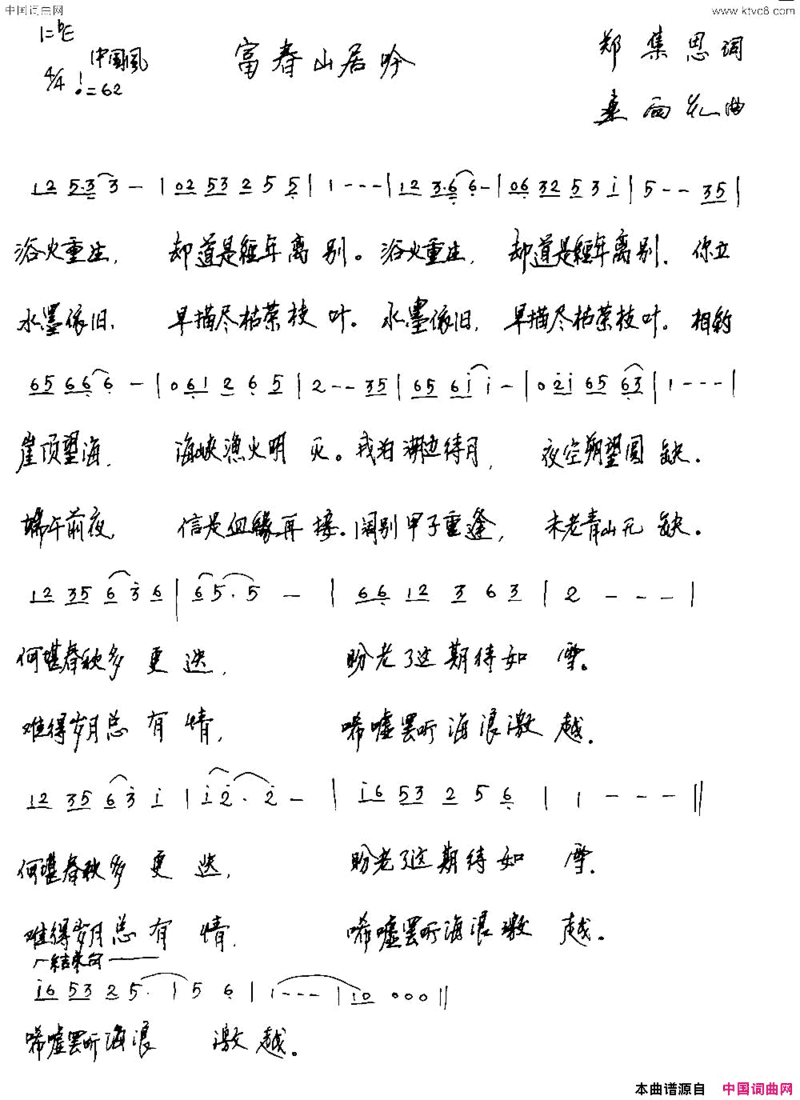 中国词曲网
www.ktvc8.com
1=bE
4/4 ♩=62 中国风
富春山居吟
郑集思词
桑雨 曲
12 5·3 3 - | 02 53 2 5 5 | 1 - - - | 12 3·6 6 - | 06 32 5 3 i | 5 - - 35 |
浴火重生, 却道是經年离别。浴火重生, 却道是經年离别. 你立
水墨依旧, 早描尽枯荣枝叶。水墨依旧, 早描尽枯荣枝叶。相約
65 66 6 - | 061 2 6 5 | 2 - - 35 | 65 6i i - | 0 2i 65 63 | 1 - - - |
崖顶望海, 海峡渔火明灭。我泊湖边待月, 夜空朔望圆缺.
端午前夜, 信是血缘再接. 阔别甲子重逢, 未老青山无缺。
12 35 6 3 6 | 65· 5 - | 66 12 3 6 3 | 2 - - - |
何堪春秋多更迭, 盼老了这期待如雪。
难得岁月总有情, 唏嘘罢听海浪激越.
12 35 63 i | i2· 2 - | i6 53 2 5 6 | 1 - - - ||
何堪春秋多更迭, 盼老了这期待如雪.
难得岁月总有情. 唏嘘罢听海浪激越。
结束句
i6 53 2 5· | 5 6 | 1 - - - | 10 000 ||
唏嘘罢听海浪 激越。
本曲谱源自 中国词曲网